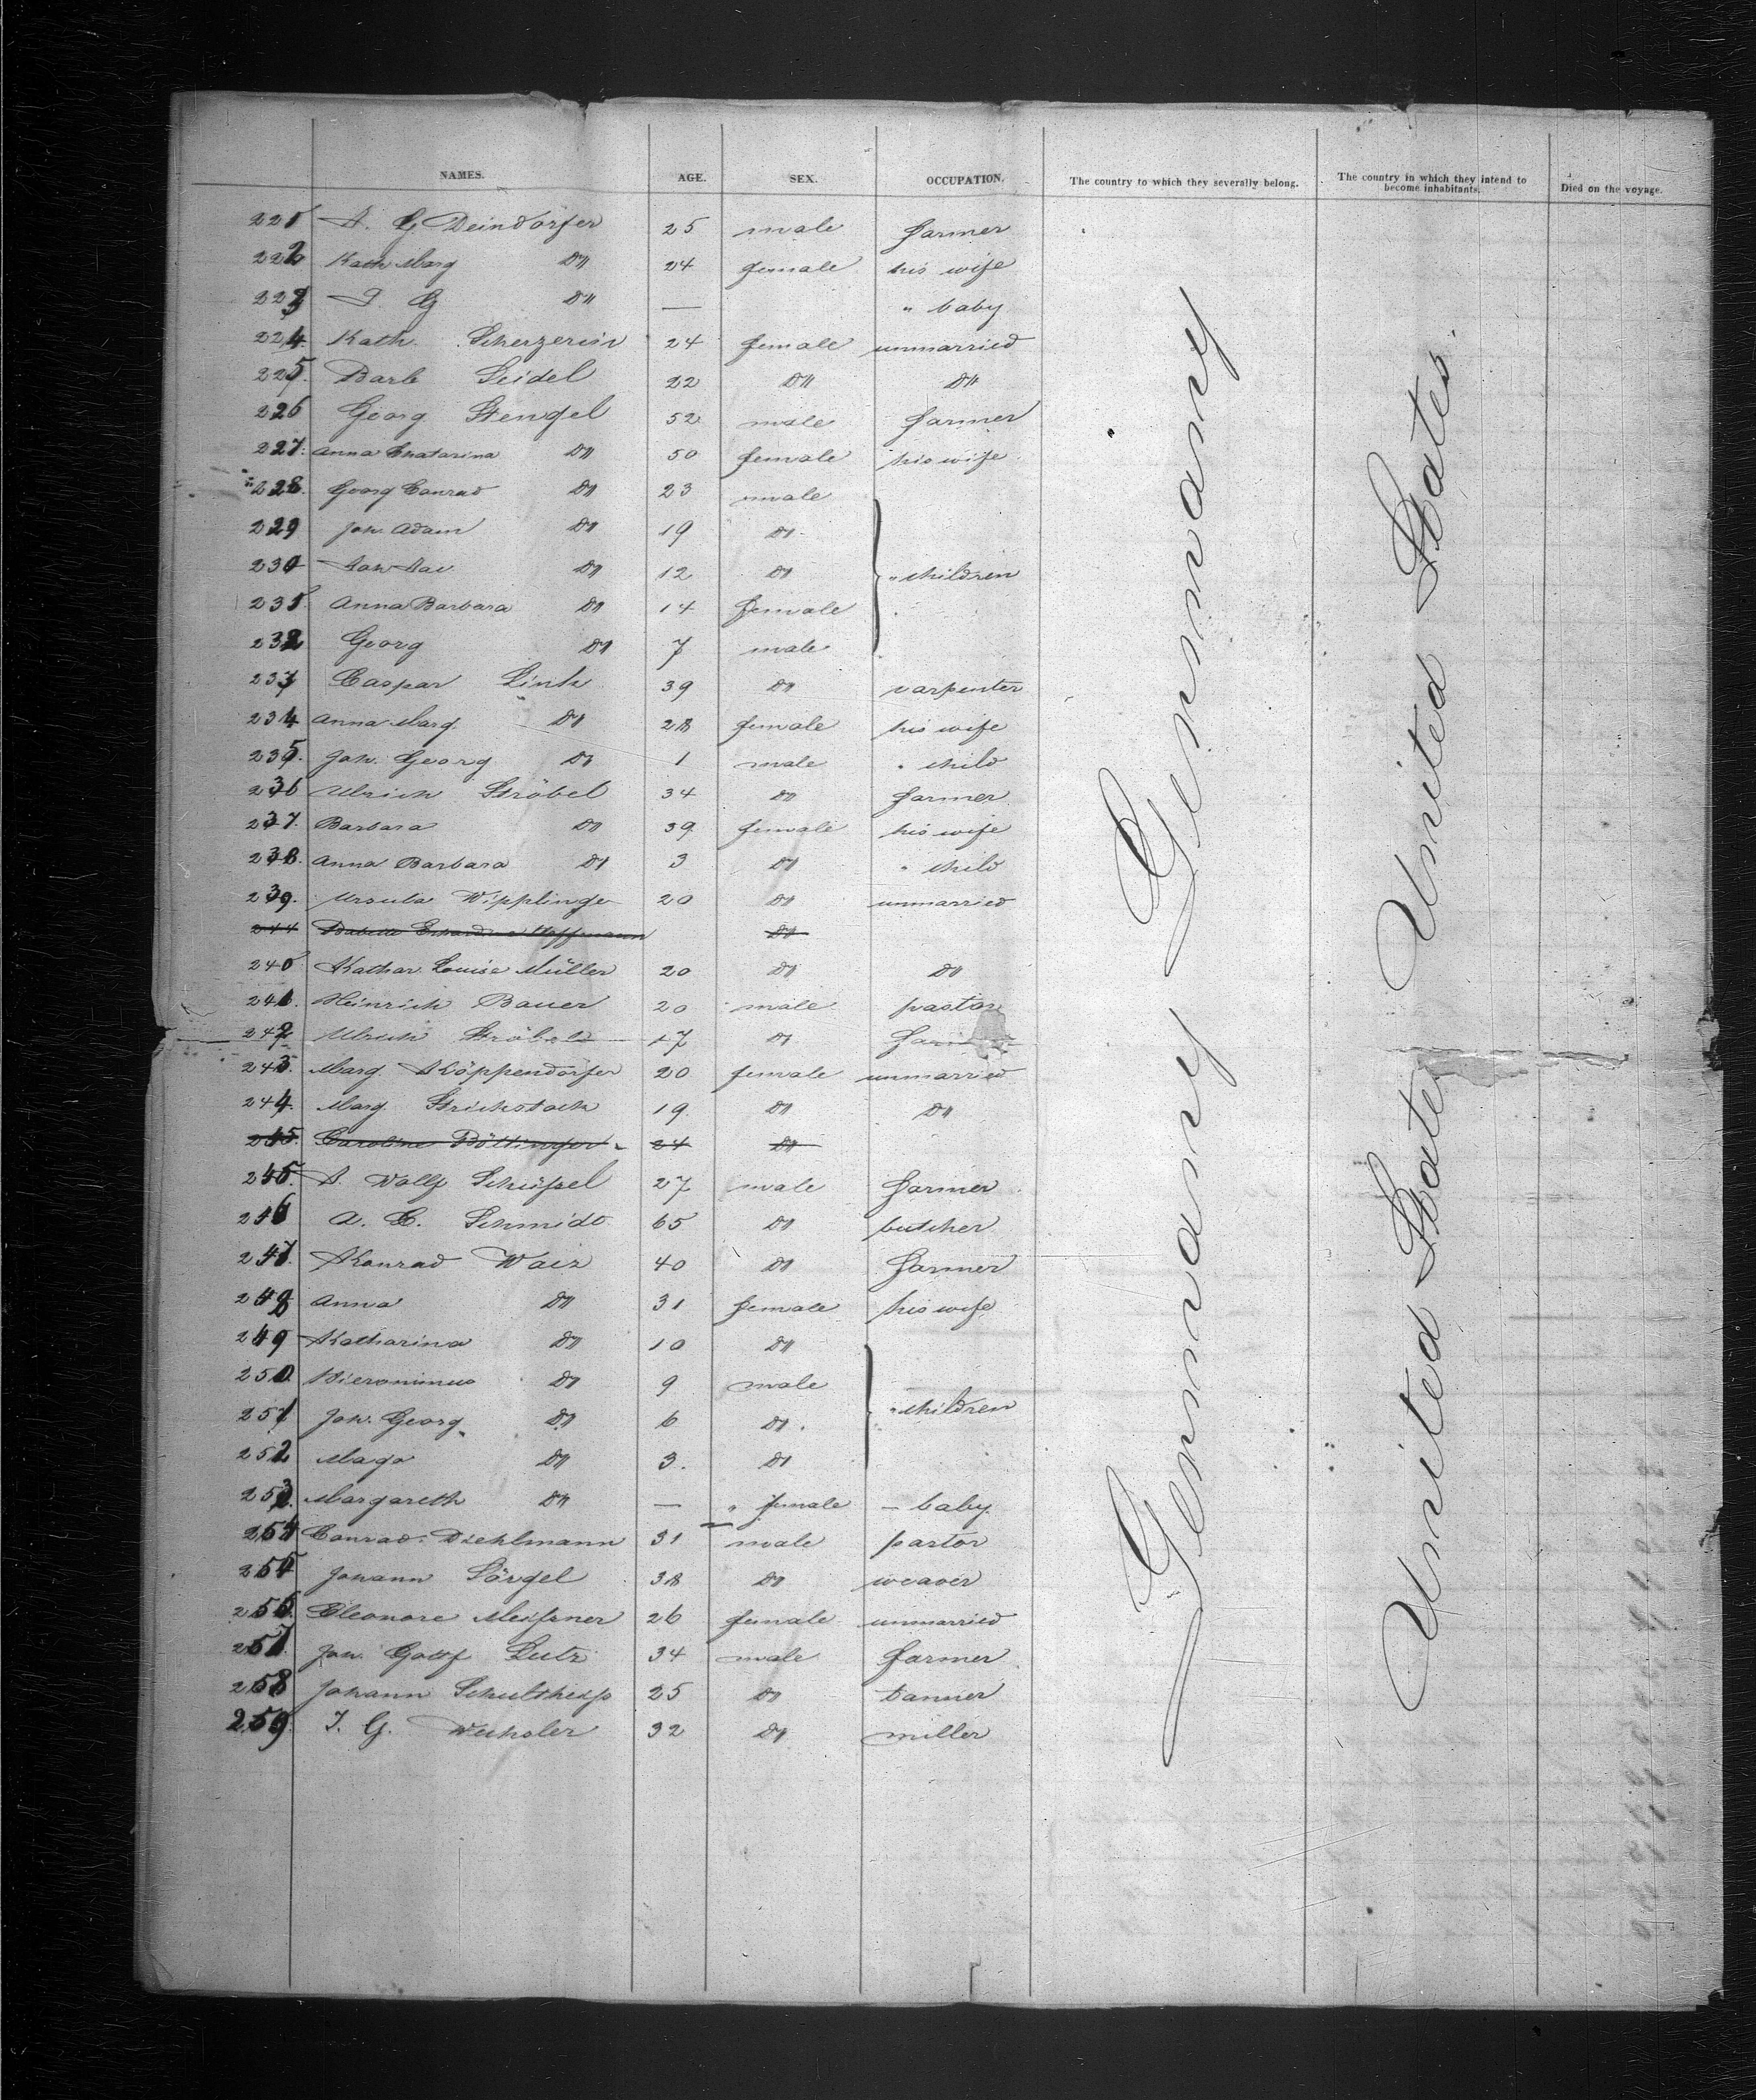 NAMES. AGE. SEX. OCCUPATION. The country to which they severally belong. The country in which they intend to become inhabitants. Died on the voyage.
221 A. G Deindörfer 25 male farmer
222 Kath Marg Do 24 female his wife
223 J. G Do — " baby
224. Kath. Scherzerin 24 female unmarried
225. Barb Seidel 22 Do Do
226 Georg Stengel 52 male farmer
227. Anna Chatarina Do 50 female his wife
228. Georg Conrad Do 23 male
229 Joh. Adam Do 19 Do
230 Do 12 Do " children
231. Anna Barbara Do 14 female
232 Georg Do 7 male
233 Caspar Link 39 Do carpenter
234 Anna Marg. Do 28 female his wife
235. Joh. Georg Do 1 male " child
236 Ulrich Ströbel 34 Do farmer
237. Barbara Do 39 female his wife
238. Anna Barbara Do 3 Do " child
239. Ursula Wipplinger 20 Do unmarried
244 Hoffmann Do
240 Kathar. Louise Müller 20 Do Do
241. Heinrich Bauer 20 male pastor
242 Ulrich Ströbel 17 Do
243. Marg. Köppendörfer 20 female unmarried
244. Marg. Strichstock 19. Do Do
245. Caroline Böttinger 24 Do
245. A. Wolfg Schüßel 27 male farmer
246 A. C. Schmidt 65 Do butcher
247. Konrad Waiz 40 Do farmer
248 Anna Do 31 female his wife
249 Katharina Do 10 Do
250. Hieronimus Do 9 male " children
251 Joh. Georg Do 6 Do.
252 Do 3. Do
253. Margareth Do — " female — baby.
254 Conrad. Diehlmann 31 male pastor
255 Johann Sörgel 38 Do weaver
256. Eleonore Meißner 26 female unmarried
257. Joh. Gottf Lutz 34 male farmer
258 Johann Schultheiß 25 Do tanner
259. J. G. Wechsler 32 Do miller
Germany Germany
United States United States.